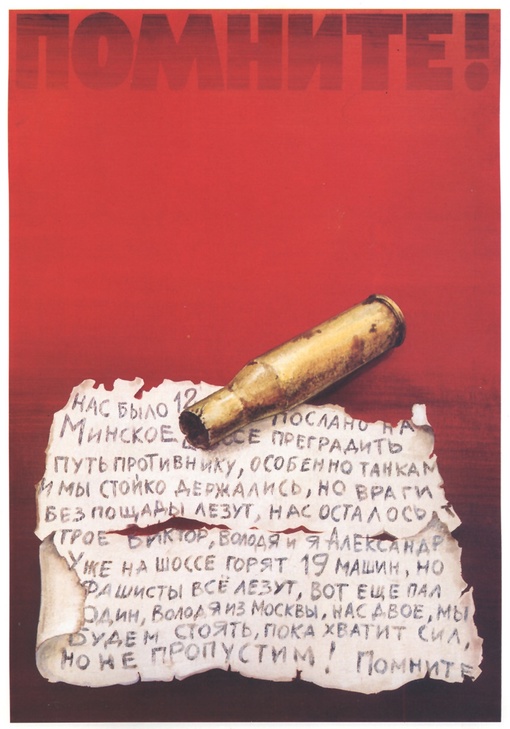 ПОМНИТЕ!
НАС БЫЛО 12 ПОСЛАНО НА
МИНСКОЕ ПРЕГРАДИТЬ
ПУТЬ ПРОТИВНИКУ, ОСОБЕННО ТАНКАМ
И МЫ СТОЙКО ДЕРЖАЛИСЬ, НО ВРАГИ
БЕЗ ПОЩАДЫ ЛЕЗУТ, НАС ОСТАЛОСЬ
ТРОЕ ВИКТОР, ВОЛОДЯ И Я АЛЕКСАНДР
УЖЕ НА ШОССЕ ГОРЯТ 19 МАШИН, НО
ФАШИСТЫ ВСЁ ЛЕЗУТ, ВОТ ЕЩЕ ПАЛ
ОДИН, ВОЛОДЯ ИЗ МОСКВЫ, НАС ДВОЕ, МЫ
БУДЕМ СТОЯТЬ, ПОКА ХВАТИТ СИЛ,
НО НЕ ПРОПУСТИМ! ПОМНИТЕ